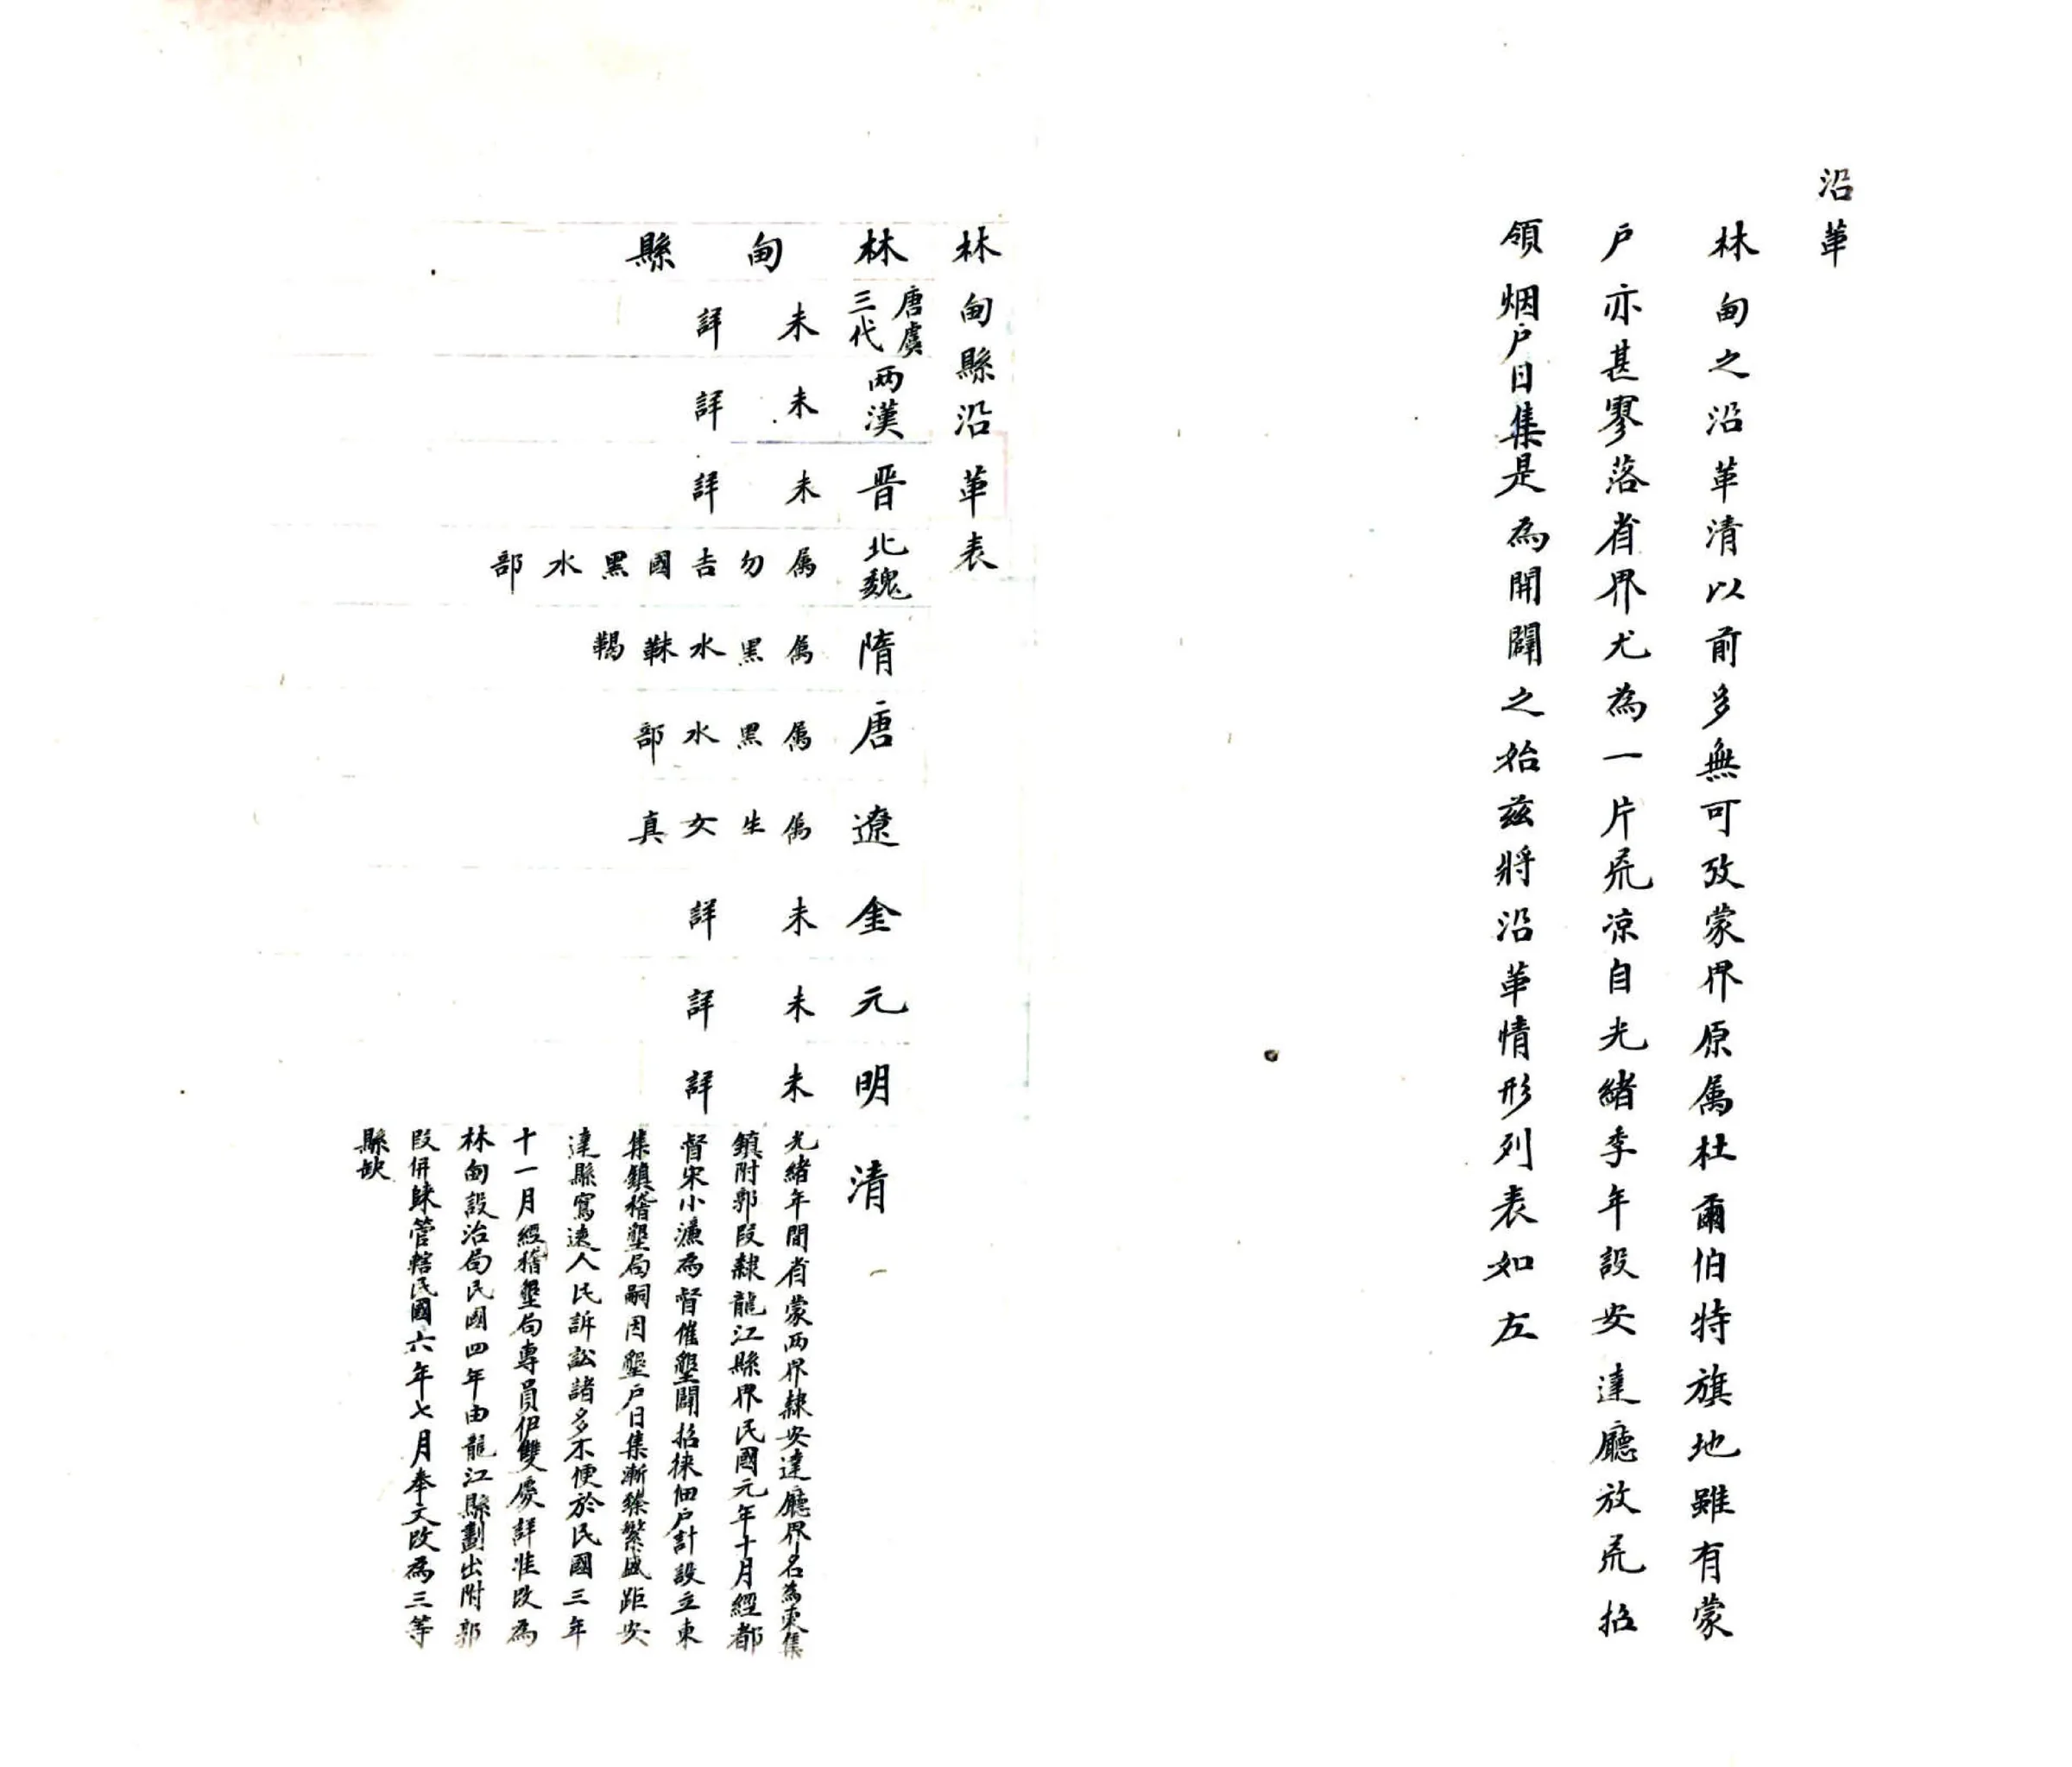 沿革
林甸之沿革清以前多無可攷蒙界原屬杜爾伯特旗地雖有蒙
户亦甚寥落省界尤為一片荒凉自光緒季年設安達廳放荒招
領烟户日集是為開闢之始兹將沿革情形列表如左
林甸縣沿革表
林甸縣
唐虞三代
未詳
兩漢
未詳
晋
未詳
北魏
屬勿吉國黑水部
隋
屬黑水靺鞨
唐
屬黑水部
遼
屬生女真
金
未詳
元
未詳
明
未詳
清
光緒年間省蒙两界隸安達廳界名為東集
鎮附郭段隸龍江縣界民國元年十月經都
督宋小濂為督催墾闢招徕佃户計設立東
集鎮稽墾局嗣因墾户日集漸臻繁盛距安
達縣窵遠人民訴訟諸多不便於民國三年
十一月經稽墾局專員伊雙慶詳准改為
林甸設治局民國四年由龍江縣劃出附郭
段併歸管轄民國六年七月奉文改為三等
縣缺